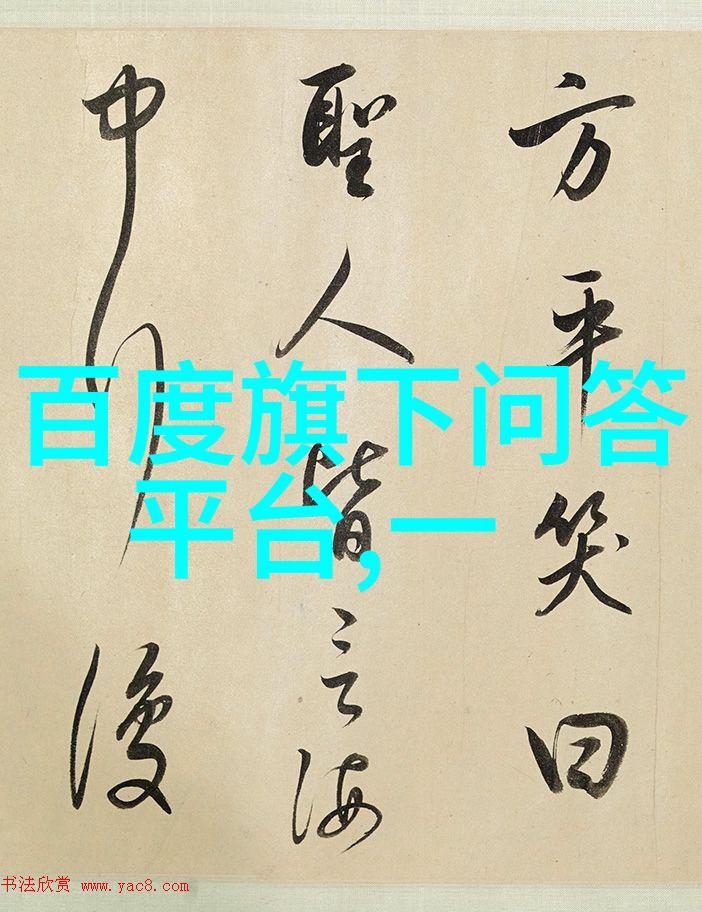 方平笑曰
聖人皆言海
中行復
百度旗下问答
平台,一
书法欣赏 www.yac8.com